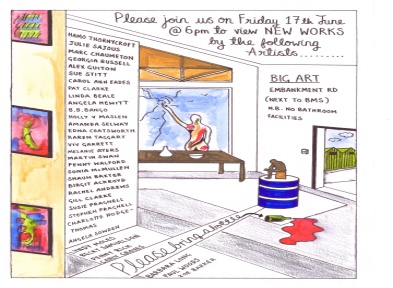 Please join us on Friday 17th June
@ 6pm to view NEW WORKS
by the following
Artists.........
HAMO THORNYCROFT
JULIE SAJOUS
MARC CHAUMETON
GEORGIA RUSSELL
ALEX GUITON
SUE STITT
CAROL ANN EADES
PAT CLARKE
LINDA BEALE
ANGELA HEWITT
B.B. BANGO
HOLLY V MASLEN
AMANDA SELWAY
EDNA COATSWORTH
KAREN TAGGART
VIV GARRETT
MELANIE AYERS
MARTIN SWAN
PENNY WALFORD
SONIA MCMULLEN
SHAUN BAXTER
BIRGIT ACKROYD
RACHEL ANDREWS
GILL CLARKE
SUSIE PRAGNELL
STEPHEN PRAGNELL
CHARLOTTE HODGE-
THOMAS
ANGELA SOWDEN
JENNY RICH
BARBARA LONG
PAUL WOODS
ZOE BARKER
BIG ART
EMBANKMENT RD
(NEXT TO BMS)
N.B. NO BATHROOM
FACILITIES
Please bring a bottle